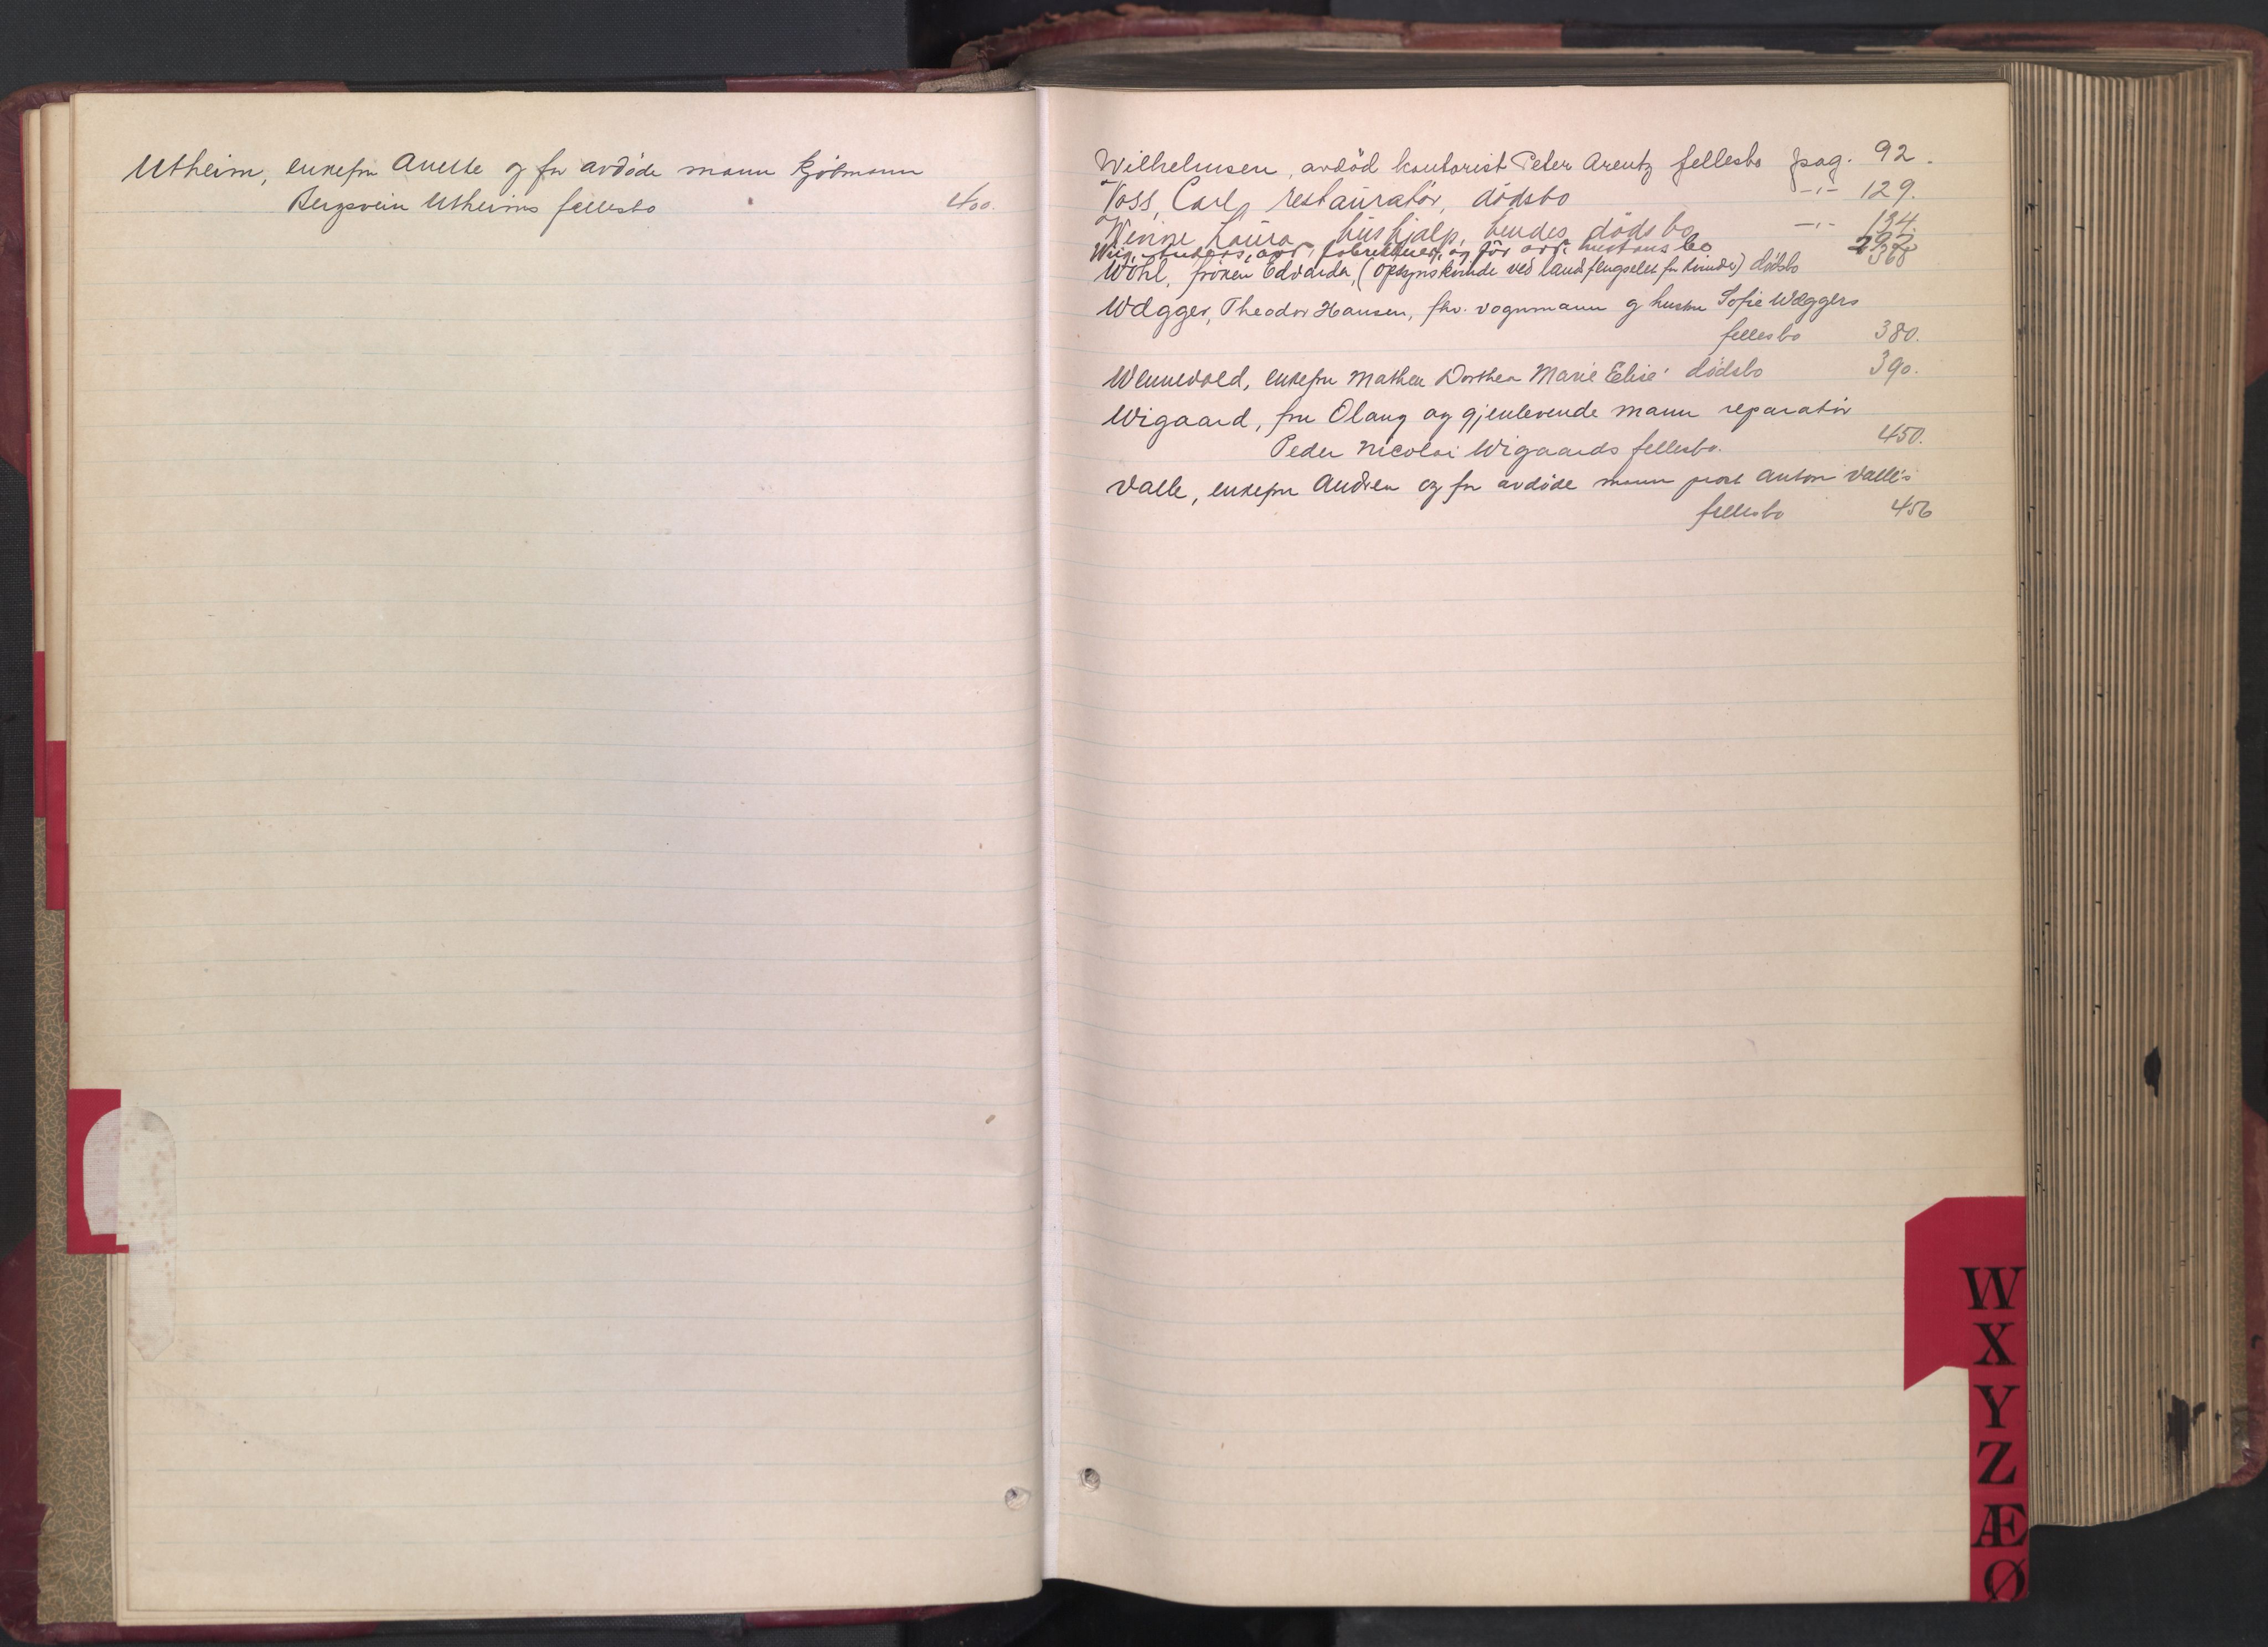 Utheim, enkefru Anette og før avdöde mann kjöbmann
Bergsvein Utheims fellesbo 400.
Wilhelmsen, avdöd kontorist Peter Arentz fellesbo pag. 92.
Voss, Carl, restauratör, dödsbo -"- 129.
Winne Laura hushjalp, hendes dödsbo -"- 134.
Wiig, avd. fabrikeier, og før avd. hustrus bo 292
Wöhl, fröken Edvarda, (opsynskvinde ved landsfengselet for kvinder) dödsbo 368
Wægger, Theodor Hansen, fhv. vognmann og hustru Sofie Wæggers
fellesbo 380.
Wennevold, enkefru Mathea Dorthea Marie Elise' dödsbo 390.
Wigaard, fru Olaug og gjenlevende mann reparatör
Peder Nicolai Wigaards fellesbo. 450.
Valle, enkefru Andrea og før avdöde mann prost Anton Valle's
fellesbo 456
W
X
Y
Z
Æ
Ø